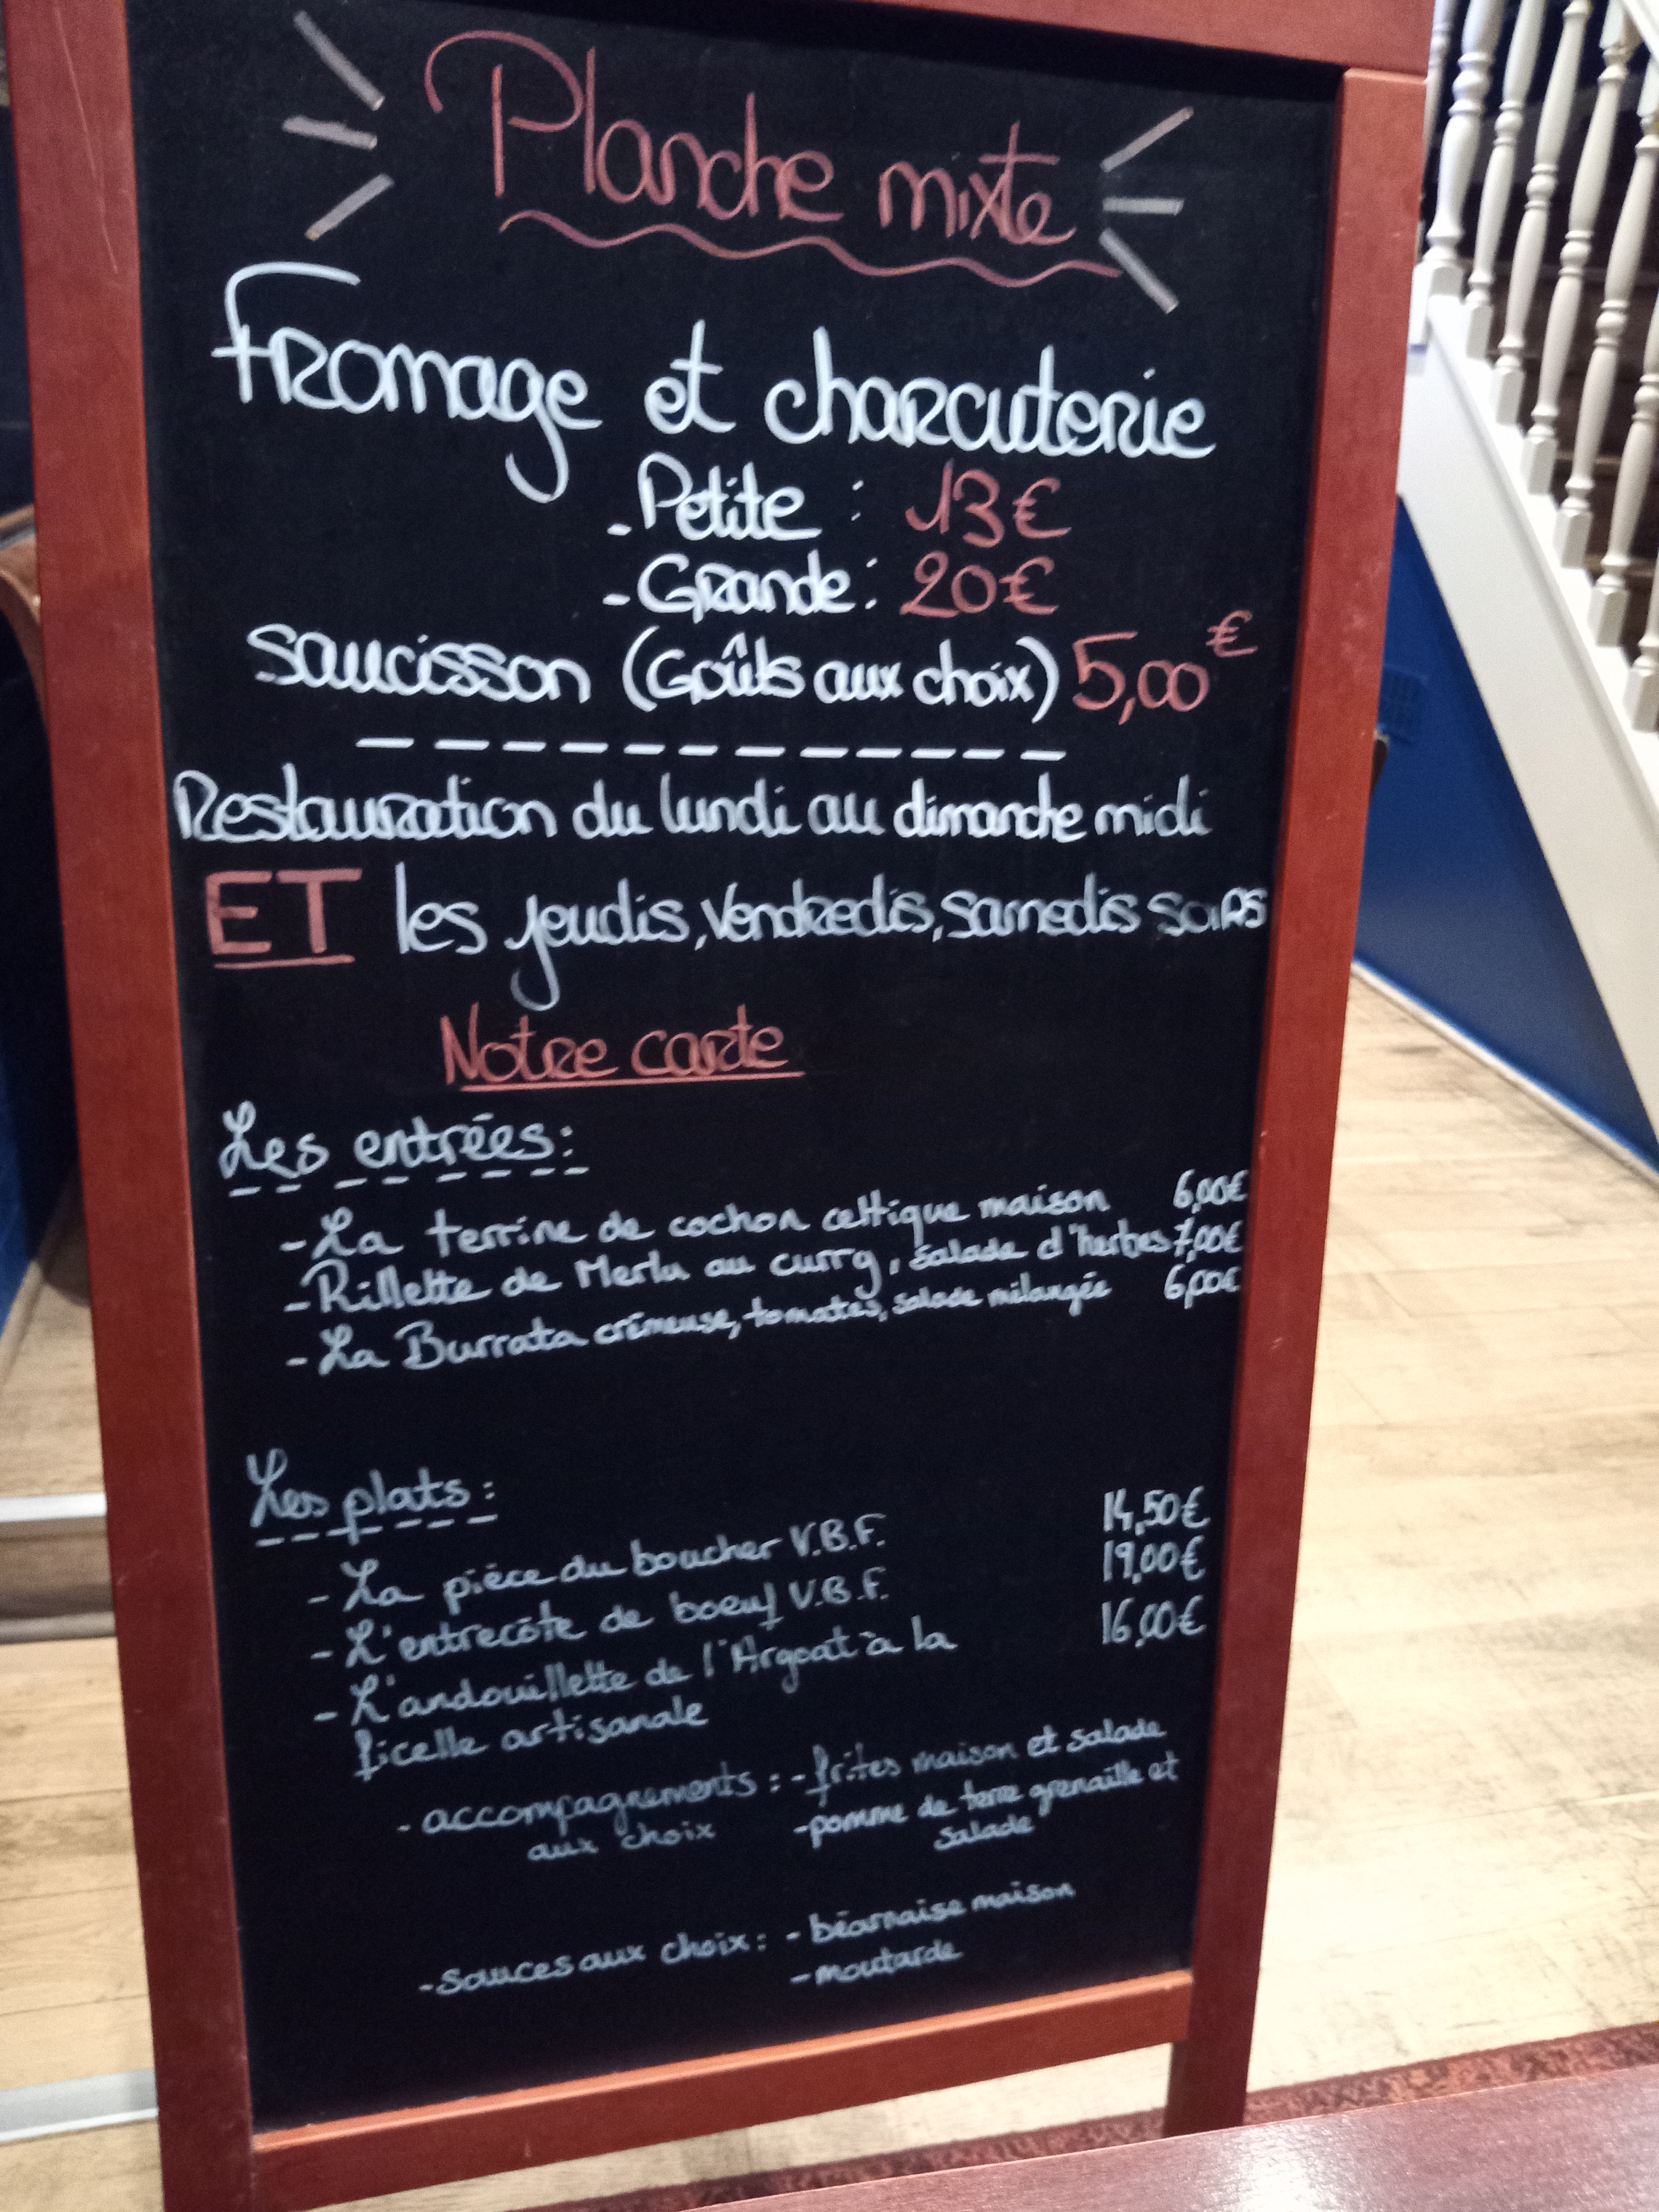 Planche mixte
Fromage et charcuterie
- Petite : 13€
- Grande : 20€
Saucisson (Goûts aux choix) 5,00€
Restauration du lundi au dimanche midi
ET les jeudis, Vendredis, Samedis soirs
Notre carte
Les entrées :
- La terrine de cochon celtique maison 6,00€
- Rillette de Merlu au curry, salade d'herbes 7,00€
- La Burrata crémeuse, tomates, salade mélangée 6,00€
Les plats :
- La pièce du boucher V.B.F. 14,50€
- L'entrecôte de boeuf V.B.F. 19,00€
- L'andouillette de l'Argoat à la 16,00€
ficelle artisanale
- accompagnements : - frites maison et salade
aux choix - pomme de terre grenaille et
salade
- sauces aux choix : - béarnaise maison
- moutarde